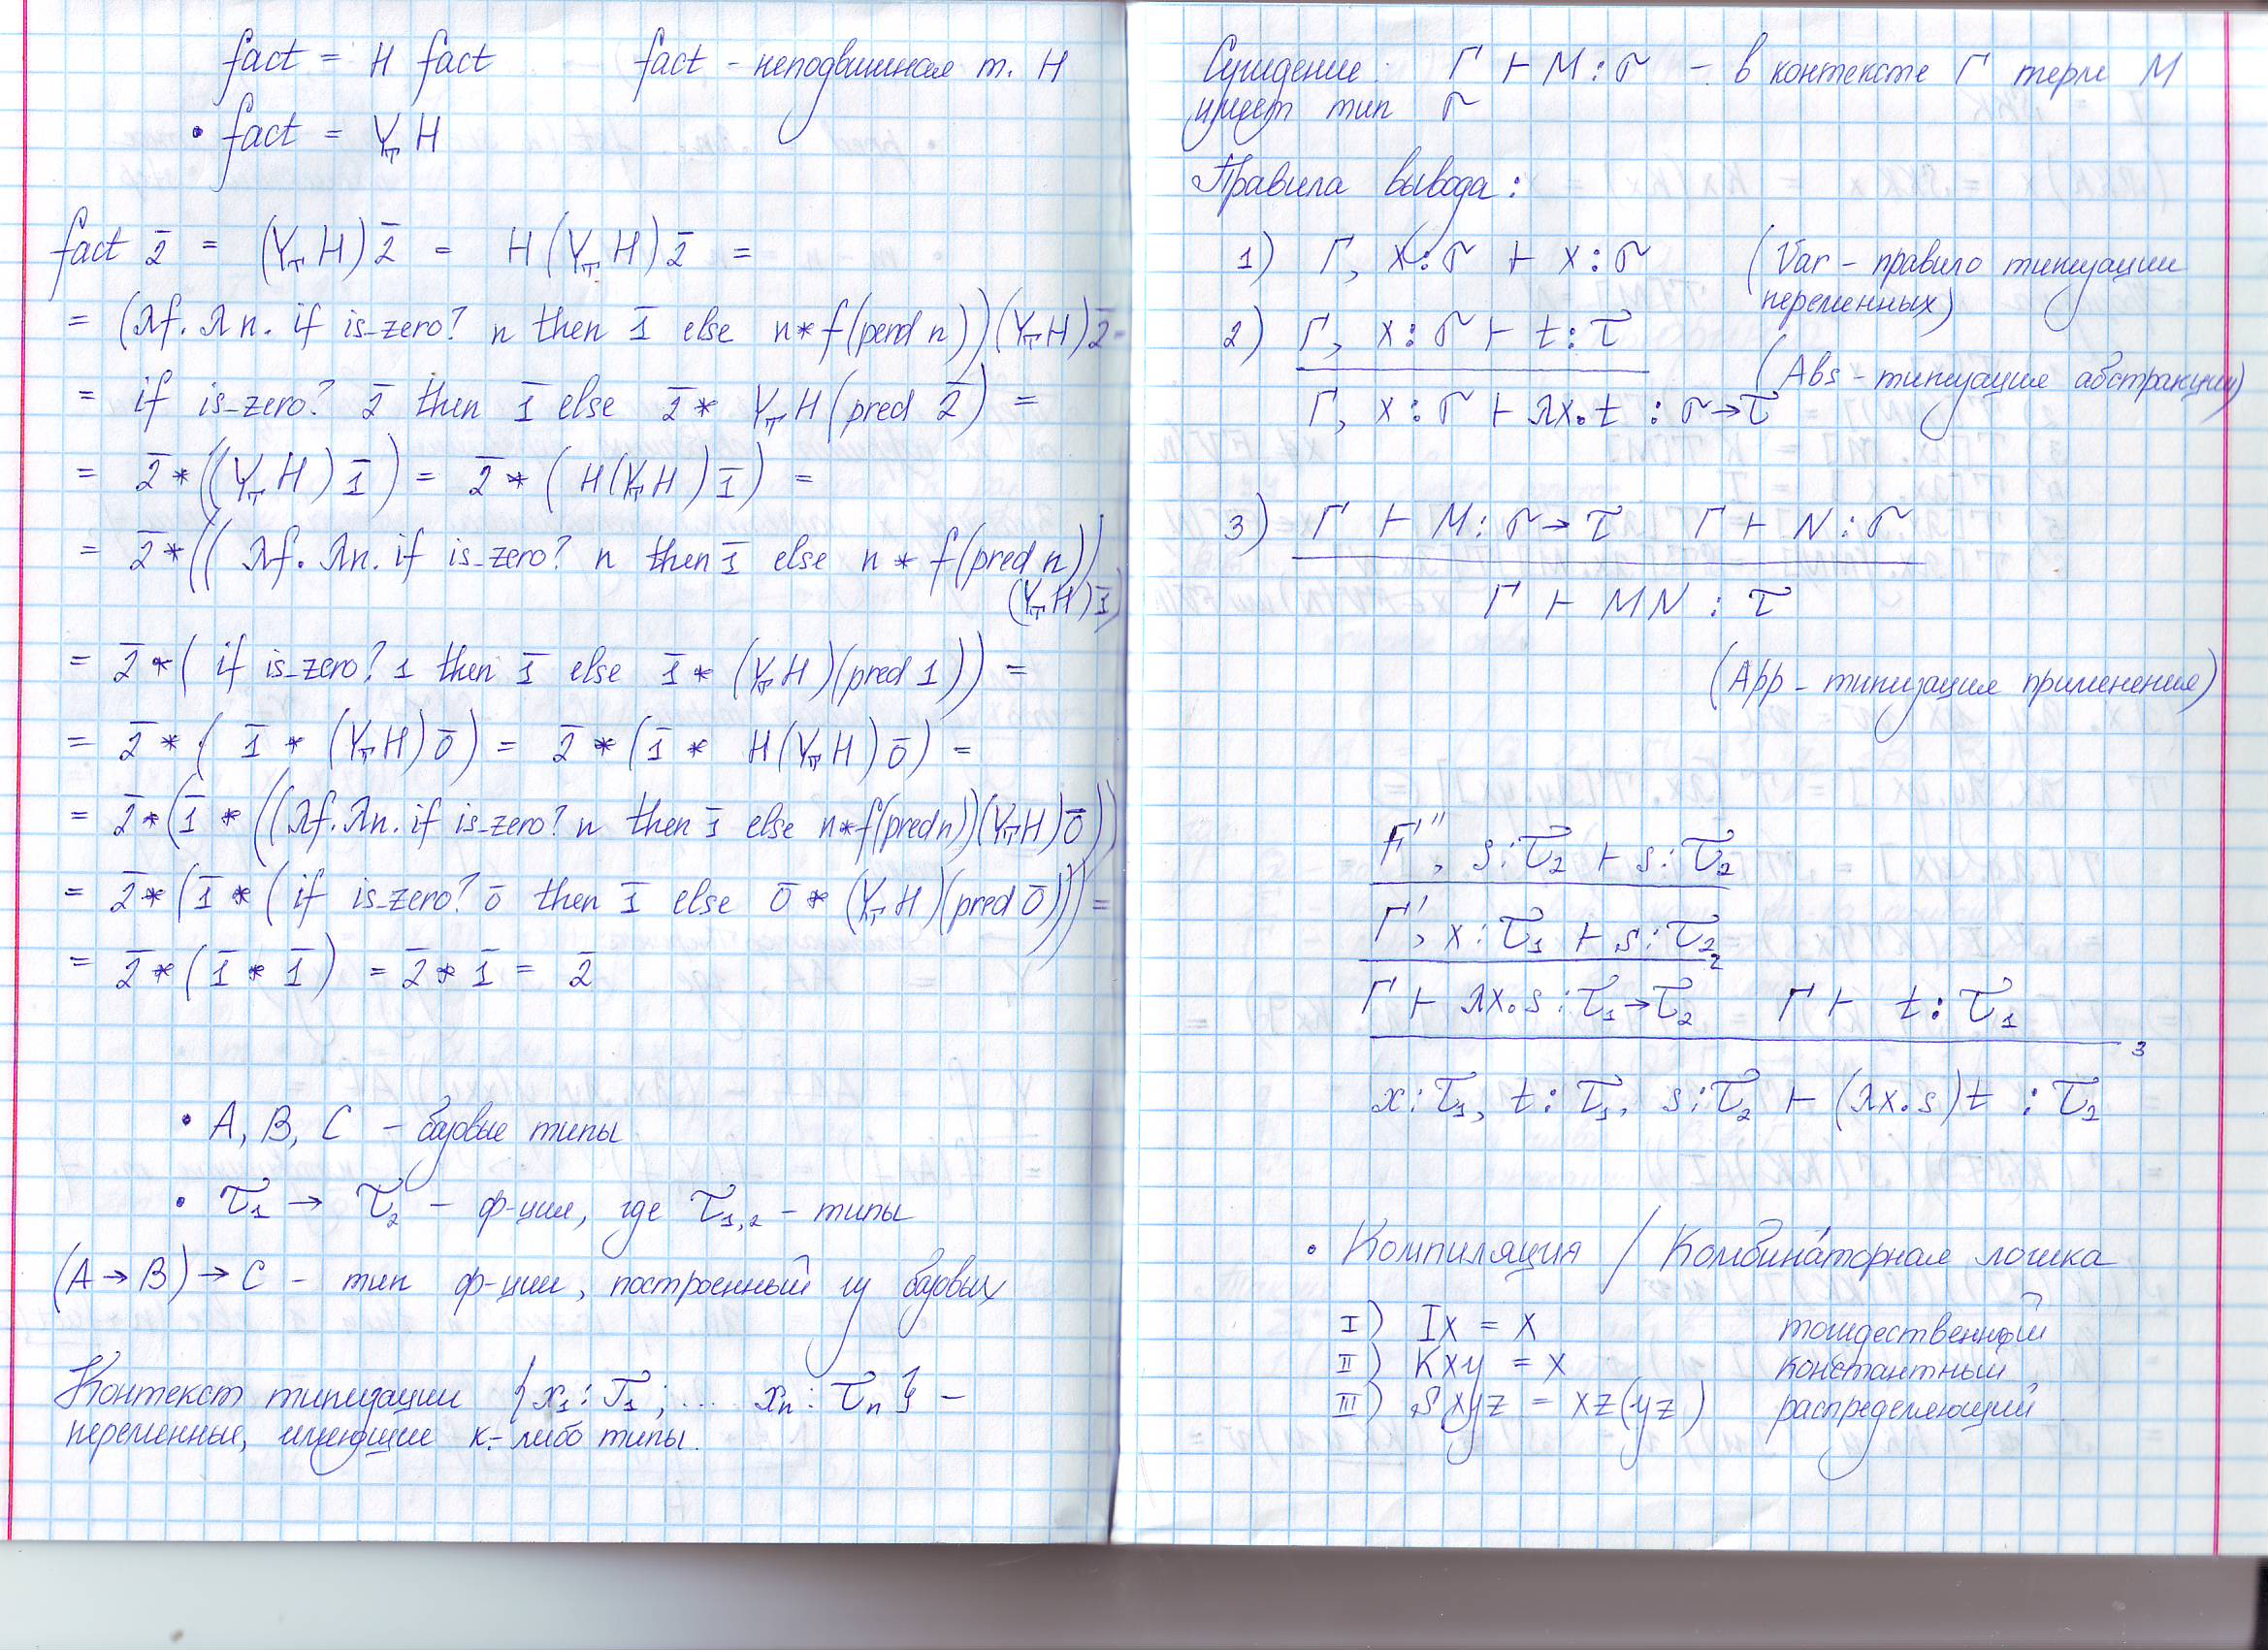 fact = H fact fact - неподвижная т. H
• fact = Y_T H
fact 2̄ = (Y_T H) 2̄ = H (Y_T H) 2̄ =
= (λf. λn. if is_zero? n then 1̄ else n * f(perd n)) (Y_T H) 2̄ =
= if is_zero? 2̄ then 1̄ else 2̄ * Y_T H (pred 2̄) =
= 2̄ * ((Y_T H) 1̄) = 2̄ * (H(Y_T H) 1̄) =
= 2̄ * (( λf. λn. if is_zero? n then 1̄ else n * f(pred n))
(Y_T H) 1̄)
= 2̄ * ( if is_zero? 1 then 1̄ else 1̄ * (Y_T H)(pred 1)) =
= 2̄ * ( 1̄ * (Y_T H) 0̄) = 2̄ * (1̄ * H(Y_T H) 0̄) =
= 2̄ * (1̄ * ((λf. λn. if is_zero? n then 1̄ else n * f(pred n))(Y_T H) 0̄))
= 2̄ * (1̄ * (if is_zero? 0̄ then 1̄ else 0̄ * (Y_T H)(pred 0̄))) =
= 2̄ * (1̄ * 1̄) = 2̄ * 1̄ = 2̄
• A, B, C - базовые типы
• τ₁ → τ₂ - ф-ция, где τ₁,₂ - типы
(A → B) → C - тип ф-ции, построенный из базовых
Контекст типизации {x₁ : τ₁; ... xₙ : τₙ} -
переменные, имеющие к.-либо типы.
Суждение: Γ ⊢ M : σ - в контексте Γ терм M
имеет тип σ
Правила вывода:
1) Γ, x : σ ⊢ x : σ (Var - правило типизации
переменных)
2) Γ, x : σ ⊢ t : τ
(Abs - типизация абстракции)
Γ, x : σ ⊢ λx. t : σ → τ
3) Γ ⊢ M : σ → τ Γ ⊢ N : σ
Γ ⊢ MN : τ
(App - типизация применения)
Γ'', s : τ₂ ⊢ s : τ₂
Γ', x : τ₁ ⊢ s : τ₂
2
Γ ⊢ λx. s : τ₁ → τ₂ Γ ⊢ t : τ₁
3
x : τ₁, t : τ₁, s : τ₂ ⊢ (λx. s) t : τ₂
• Компиляция / Комбина́торная логика
I) Ix = x тождественный
II) Kxy = x константный
III) Sxyz = xz(yz) распределяющий